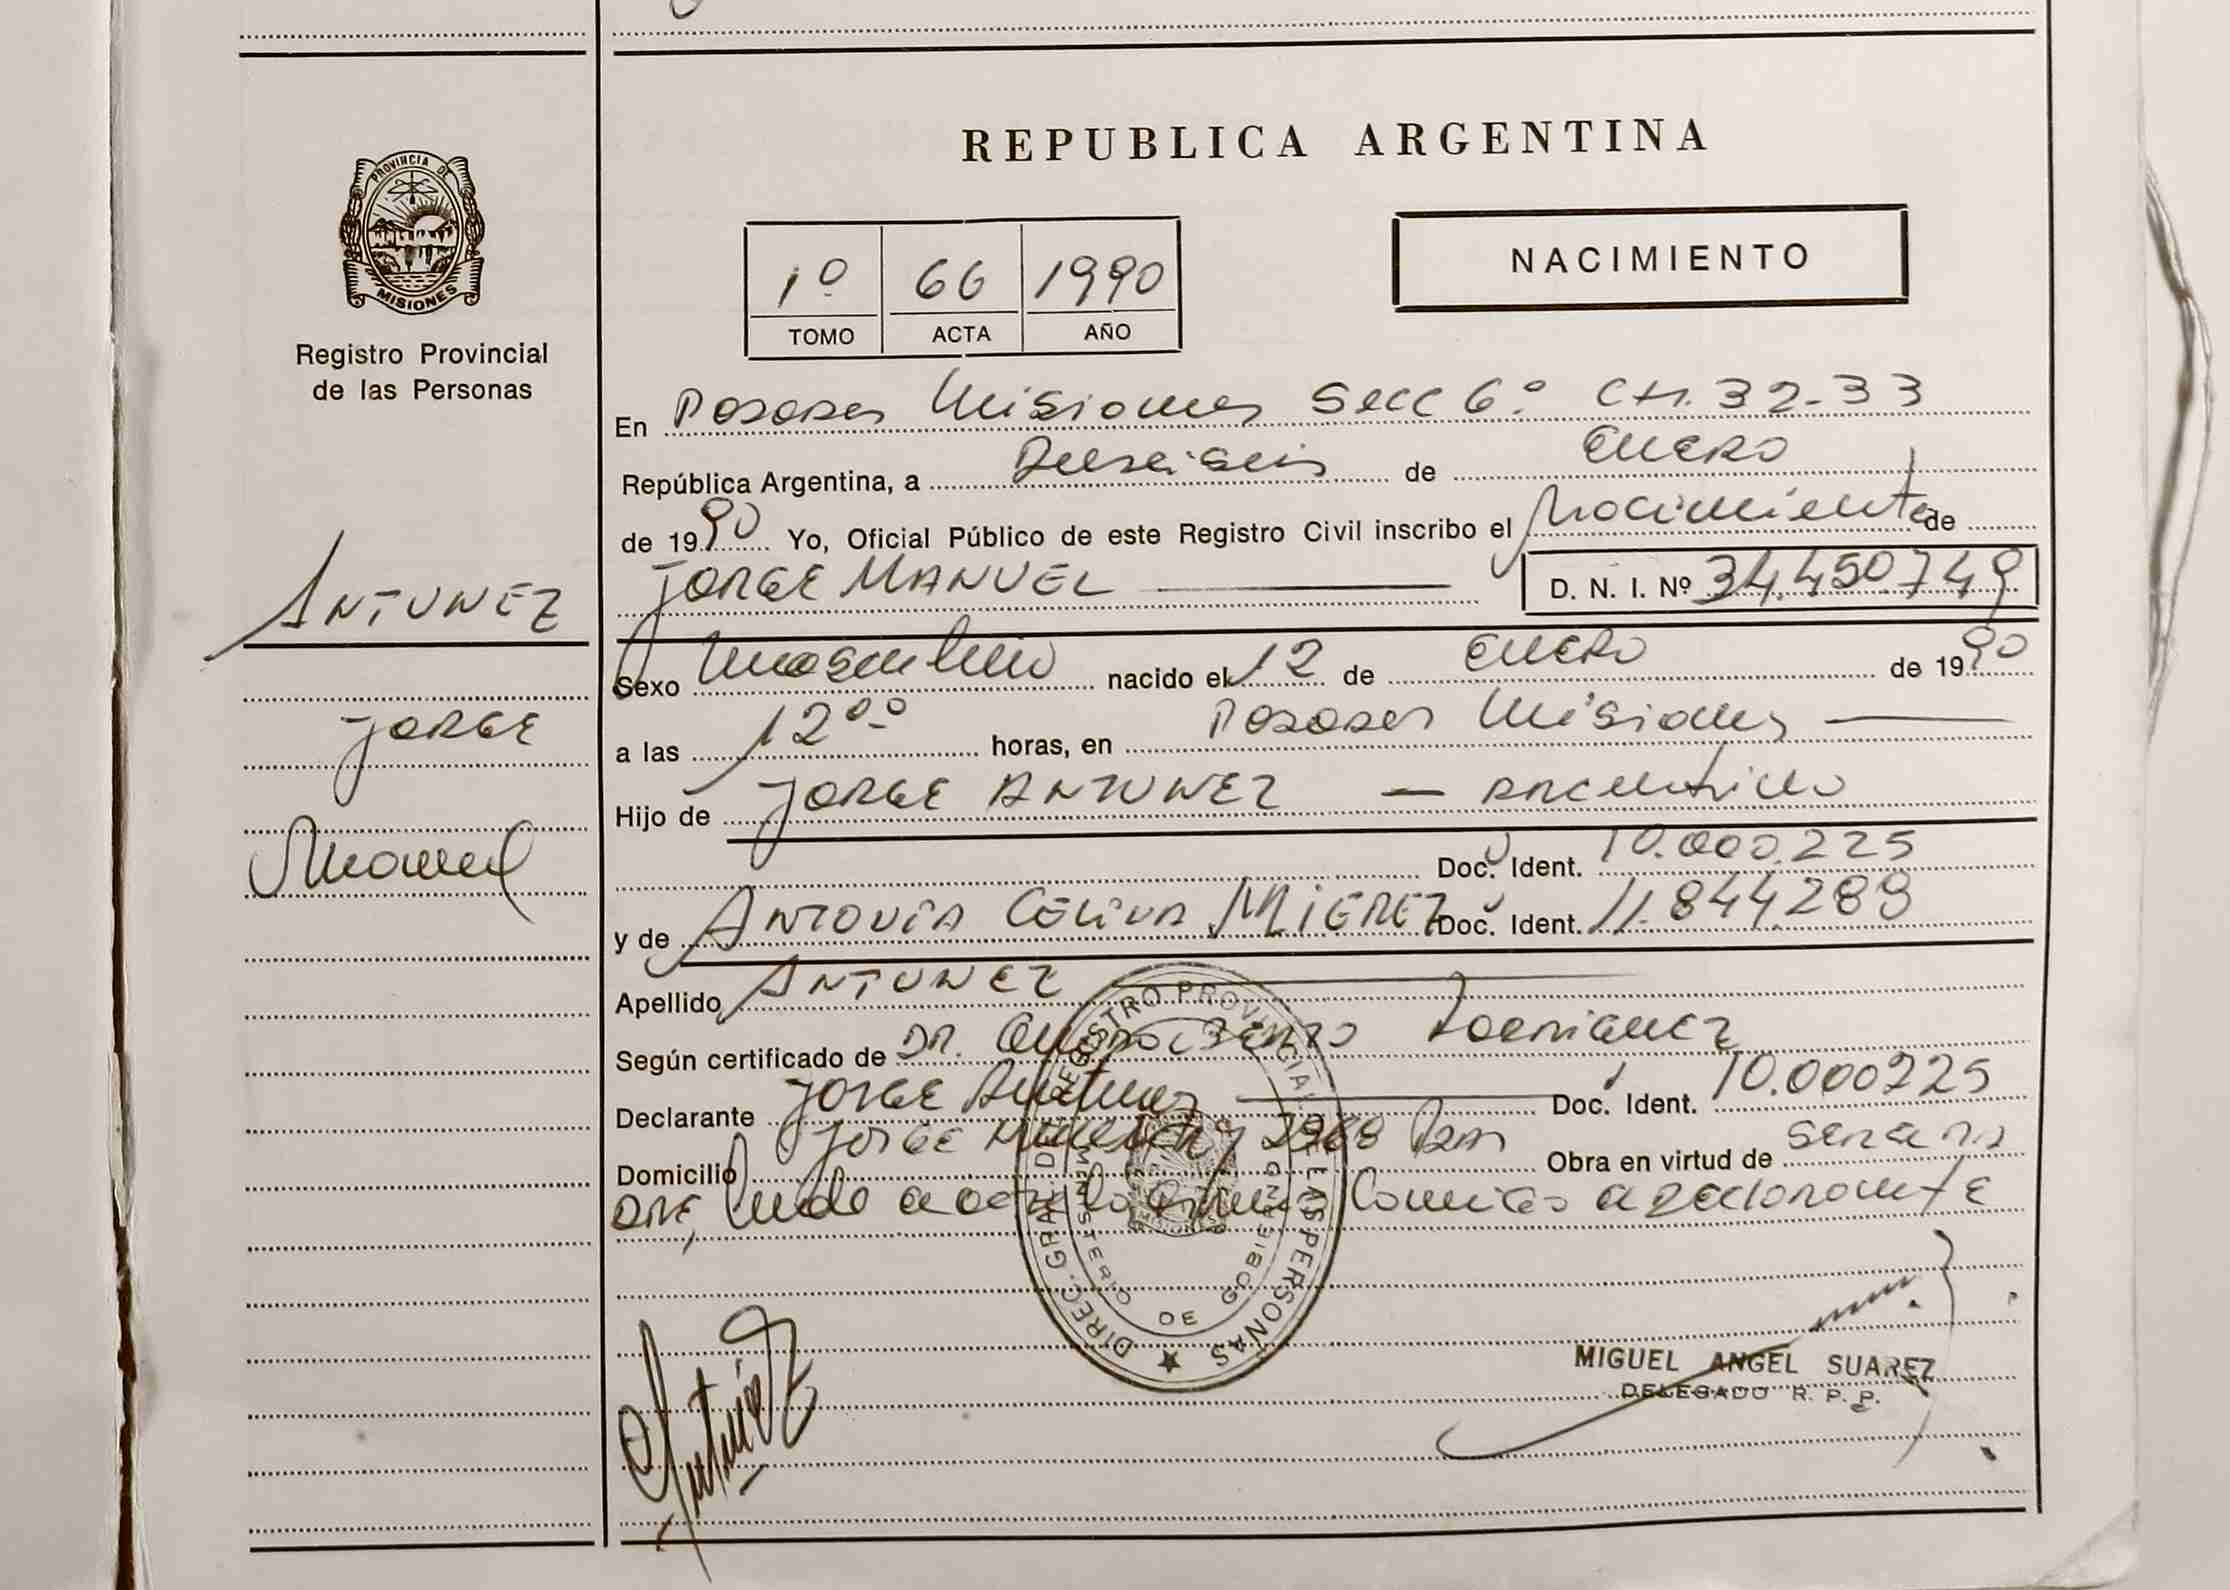 REPUBLICA ARGENTINA
PROVINCIA DE
MISIONES
Registro Provincial
de las Personas
1º 66 1990
TOMO ACTA AÑO
NACIMIENTO
En Posadas Misiones Secc 6º 32-33
República Argentina, a Dieciseis de Enero
de 1990 Yo, Oficial Público de este Registro Civil inscribo el Nacimiento de
JORGE MANUEL D. N. I. Nº 34.450.749
ANTUNEZ
JORGE
Manuel
Sexo Masculino nacido el 12 de Enero de 1990
a las 12 00 horas, en Posadas Misiones
Hijo de JORGE ANTUNEZ — ARGENTINO
Doc. Ident. 10.000.225
y de ANTONIA CELINA MIEREZ Doc. Ident. 11.844.289
Apellido ANTUNEZ
Según certificado de DR.
Declarante JORGE Antunez Doc. Ident. 10.000225
Domicilio JORGE Obra en virtud de
DIREC. GRAL. DE REGISTRO PROVINCIAL DE LAS PERSONAS
MINISTERIO DE GOBIERNO
Antúnez
MIGUEL ANGEL SUAREZ
DELEGADO R. P. P.